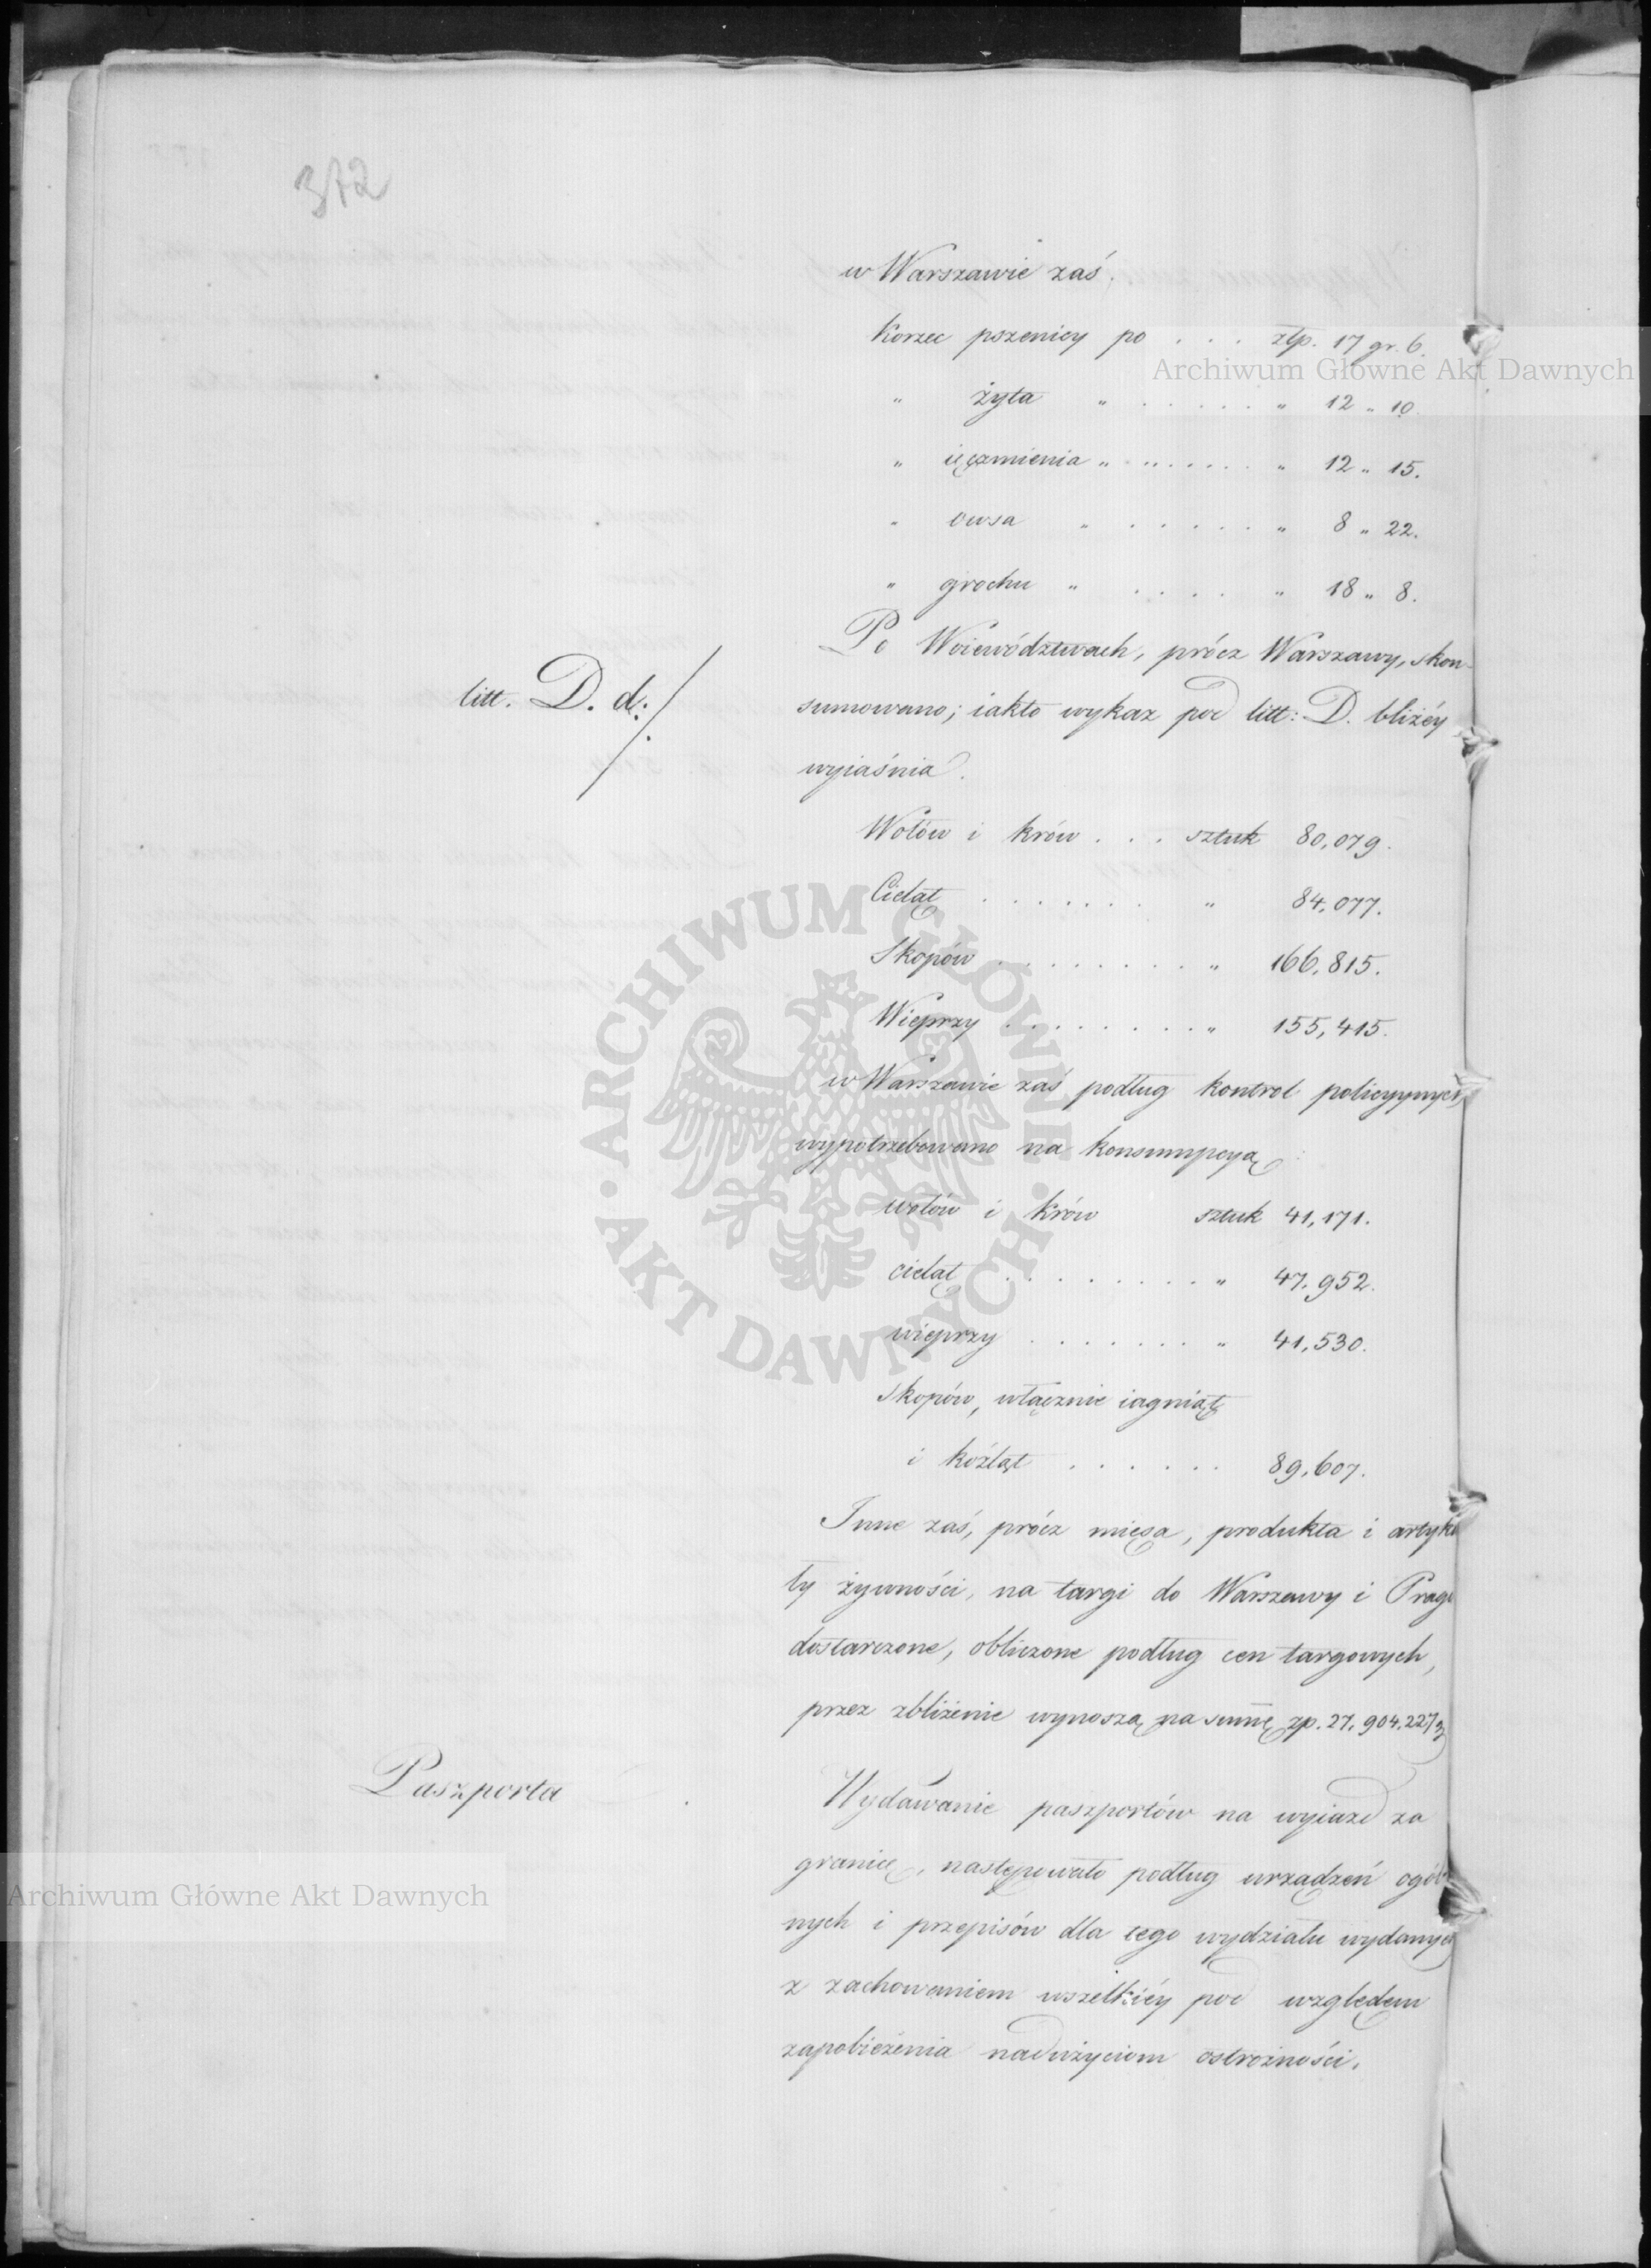 372
w Warszawie zaś.
Korzec pszenicy po . . . złp. 17 gr. 6.
Archiwum Główne Akt Dawnych
" żyta " . . . . . . " 12 " 10.
" ięczmienia " . . . . . . " 12 " 15.
" owsa " . . . . . . " 8 " 22.
" grochu " . . . . " 18 " 8.
Po Woiewództwach, prócz Warszawy, skon-
litt. D. d:/.
sumowano; iakto wykaz pod litt: D. bliżéy
wyiaśnia.
Wołów i krów . . . sztuk 80,079.
Cieląt . . . . . . . " 84,077.
Skopów . . . . . . . . . " 166,815.
Wieprzy . . . . . . . . . " 155,415.
w Warszawie zaś podług kontrol policyynych,
wypotrzebowano na konsumpcyą:
wołów i krów sztuk 41,171.
cieląt . . . . . . . . . " 47,952.
wieprzy . . . . . . . . " 41,530.
skopów, włącznie iagniąt
i koźląt . . . . . . 89,607.
Inne zaś, prócz mięsa, produkta i artyku
ły żywności, na targi do Warszawy i Pragi
dostarczone, obliczone podług cen targowych,
przez zbliżenie wynoszą na sum̄ę zp. 27,904,227
Paszporta
Wydawanie paszportów na wyiazd za
granicę, następowało podług urządzeń ogól
Archiwum Główne Akt Dawnych
nych i przepisów dla tego wydziału wydanych
z zachowaniem wszelkiéy pod względem
zapobieżenia nadużyciom ostrożności.
ARCHIWUM GŁÓWNE · AKT DAWNYCH ·